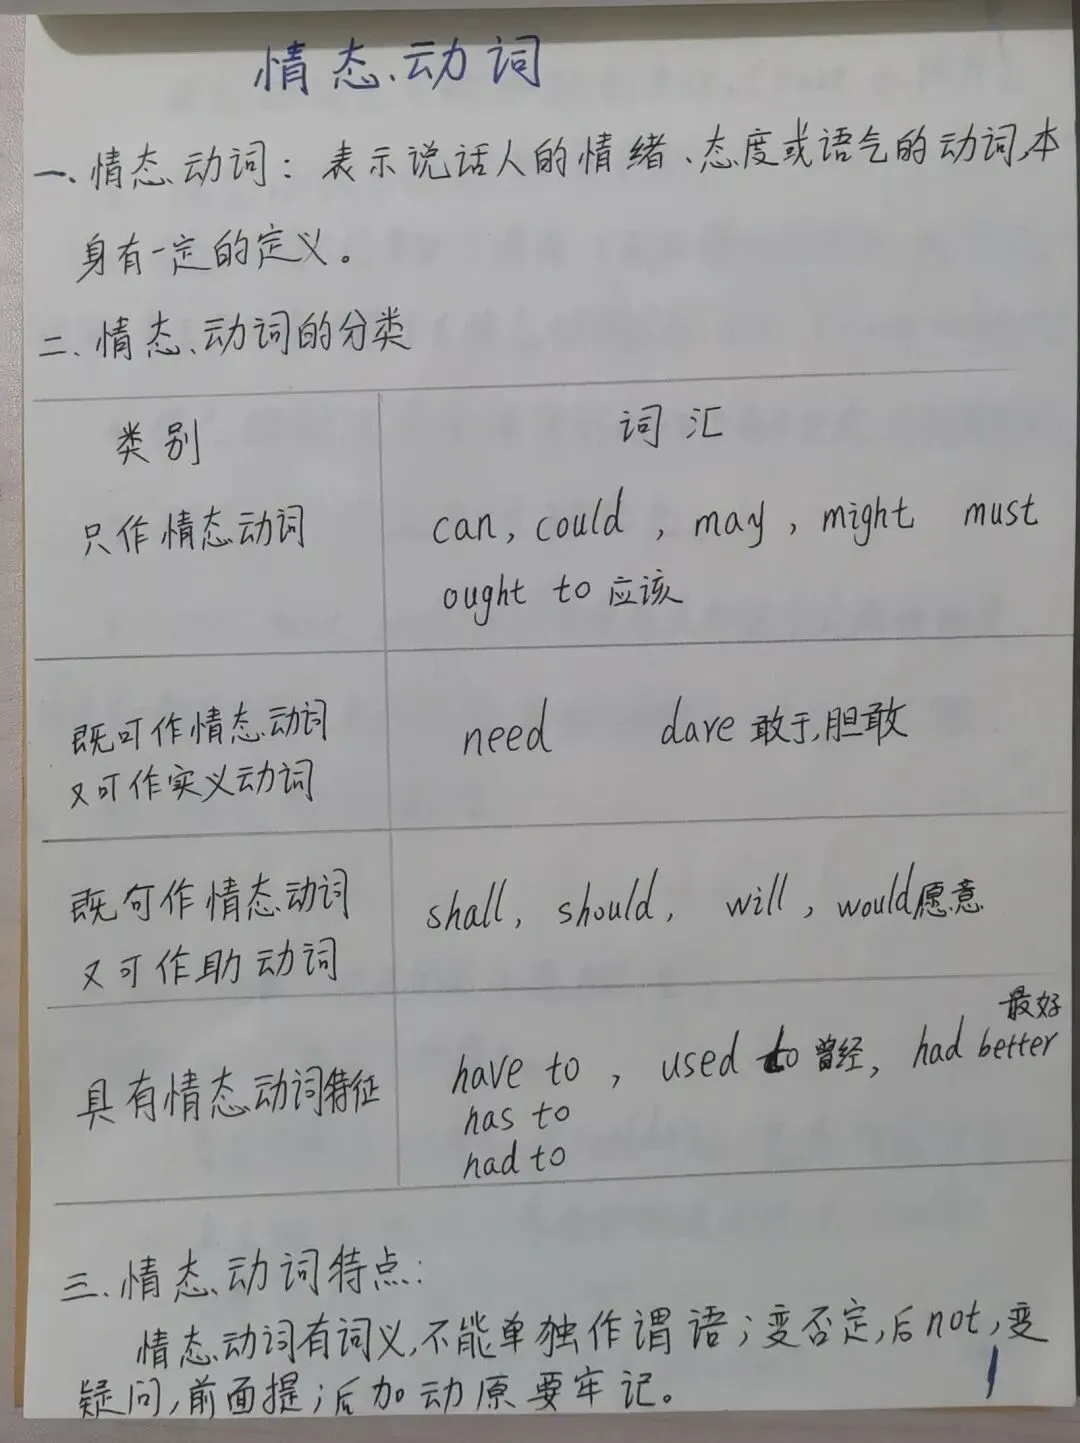 情态动词
一、情态动词：表示说话人的情绪、态度或语气的动词,本
身有一定的定义。
二、情态动词的分类
类别 词汇
只作情态动词 can, could , may , might must
ought to 应该
既可作情态动词 need dare 敢于,胆敢
又可作实义动词
既可作情态动词 shall, should, will , would愿意
又可作助动词
最好
具有情态动词特征 have to , used to 曾经, had better
has to
had to
三、情态动词特点:
情态动词有词义,不能单独作谓语;变否定,后not,变
疑问,前面提;后加动原要牢记。
1